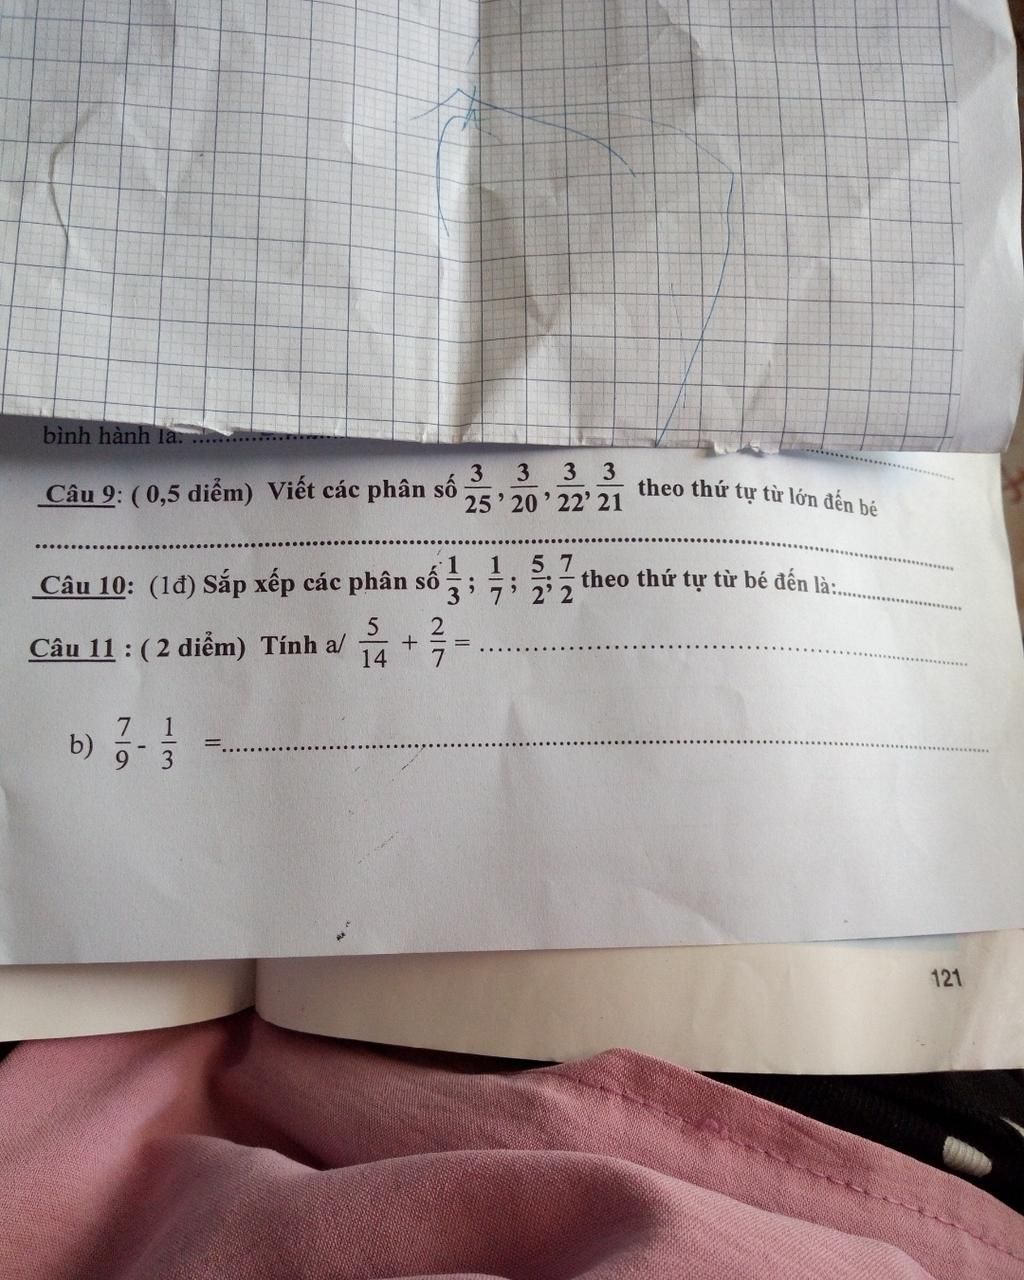 bình hành là: ........................
Câu 9: ( 0,5 diểm) Viết các phân số 3/25 , 3/20 , 3/22 , 3/21 theo thứ tự từ lớn đến bé
........................................................................
Câu 10: (1đ) Sắp xếp các phân số 1/3 ; 1/7 ; 5/2 ; 7/2 theo thứ tự từ bé đến là:........................
Câu 11 : ( 2 diểm) Tính a/ 5/14 + 2/7 = ........................................
b) 7/9 - 1/3 =........................................................................
121